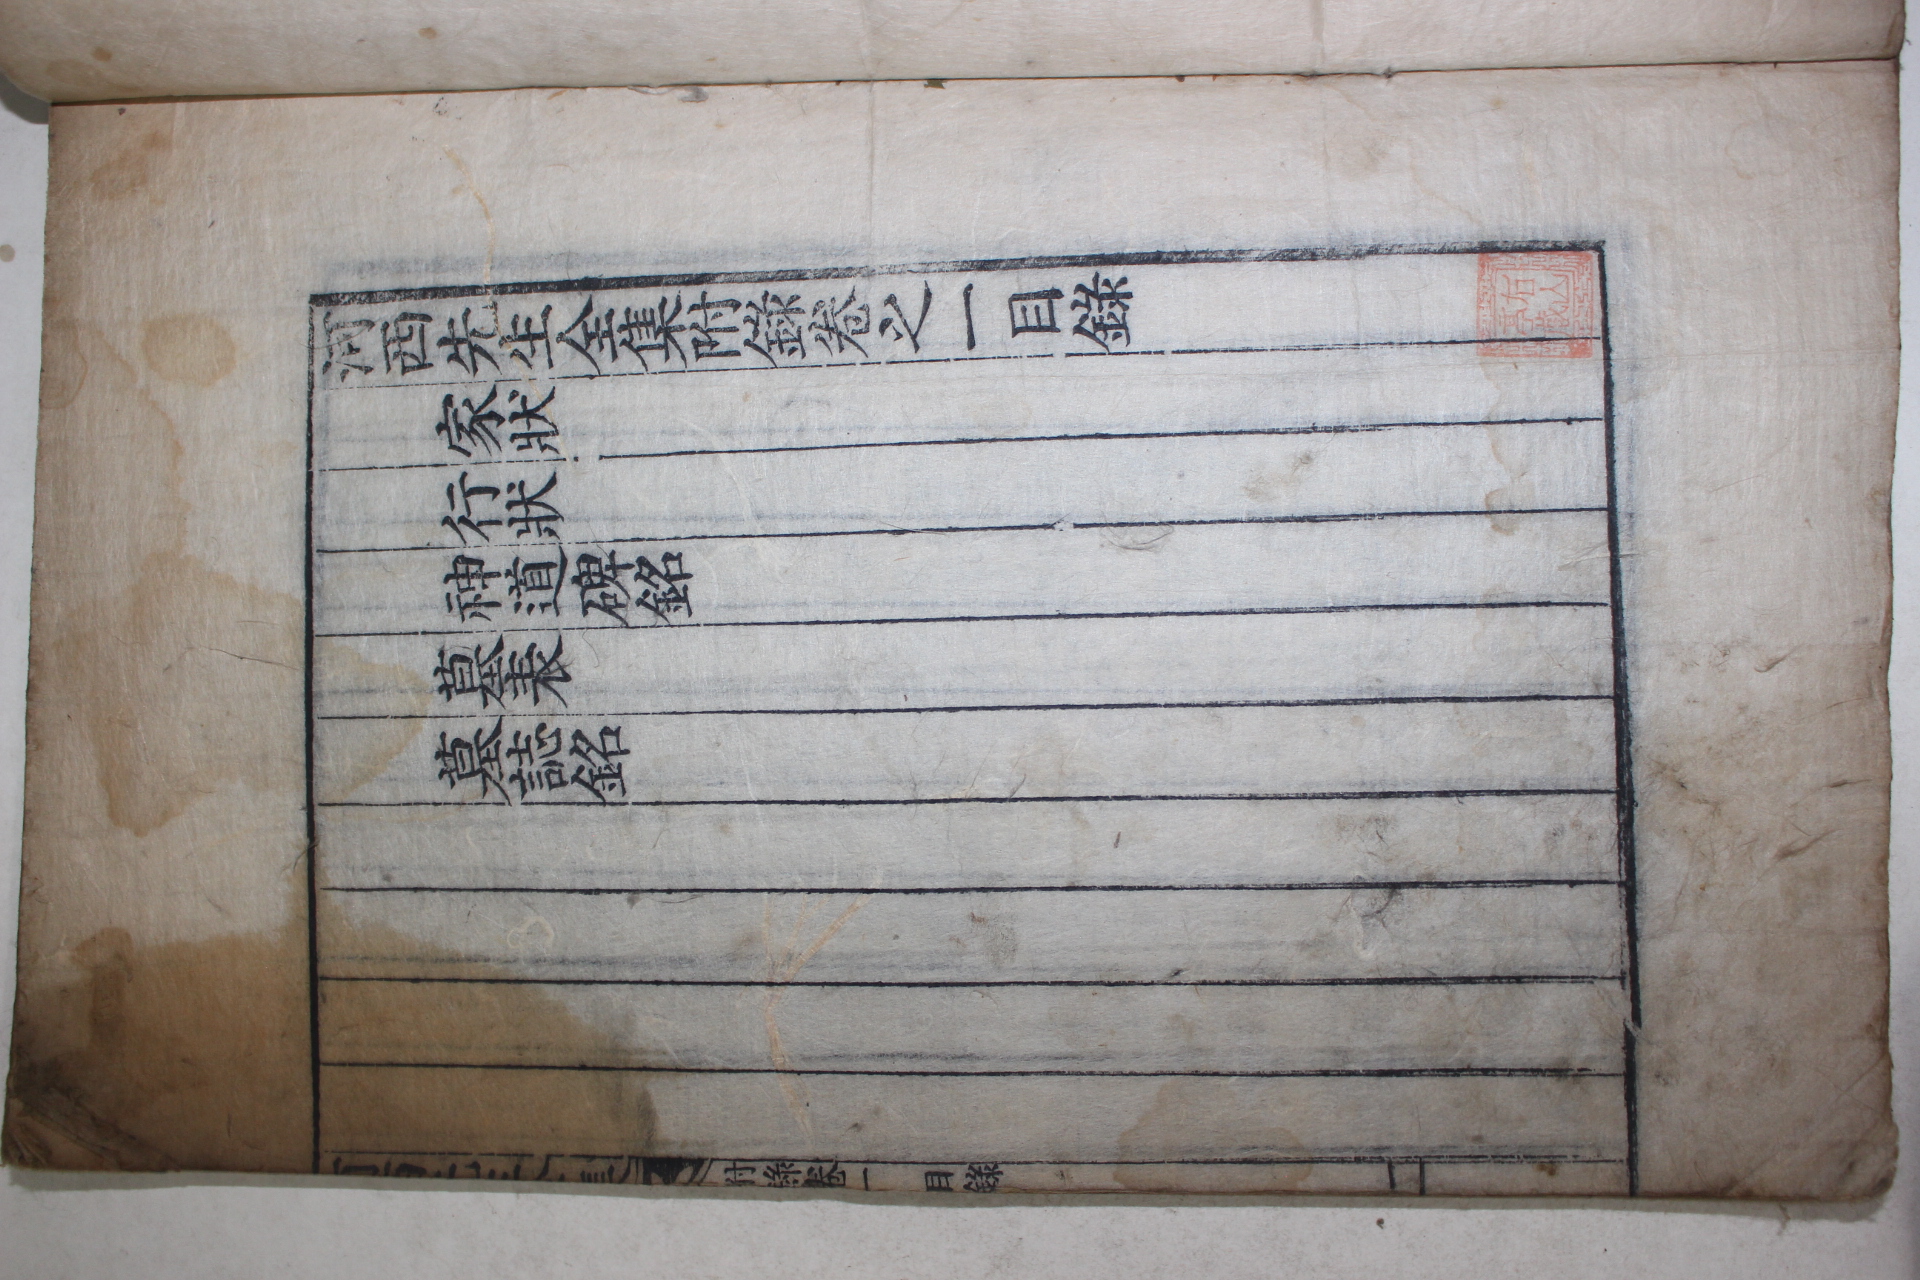 河西先生全集附錄卷之一目錄
家狀
行狀
神道碑銘
墓表
墓誌銘
附錄卷一 目錄